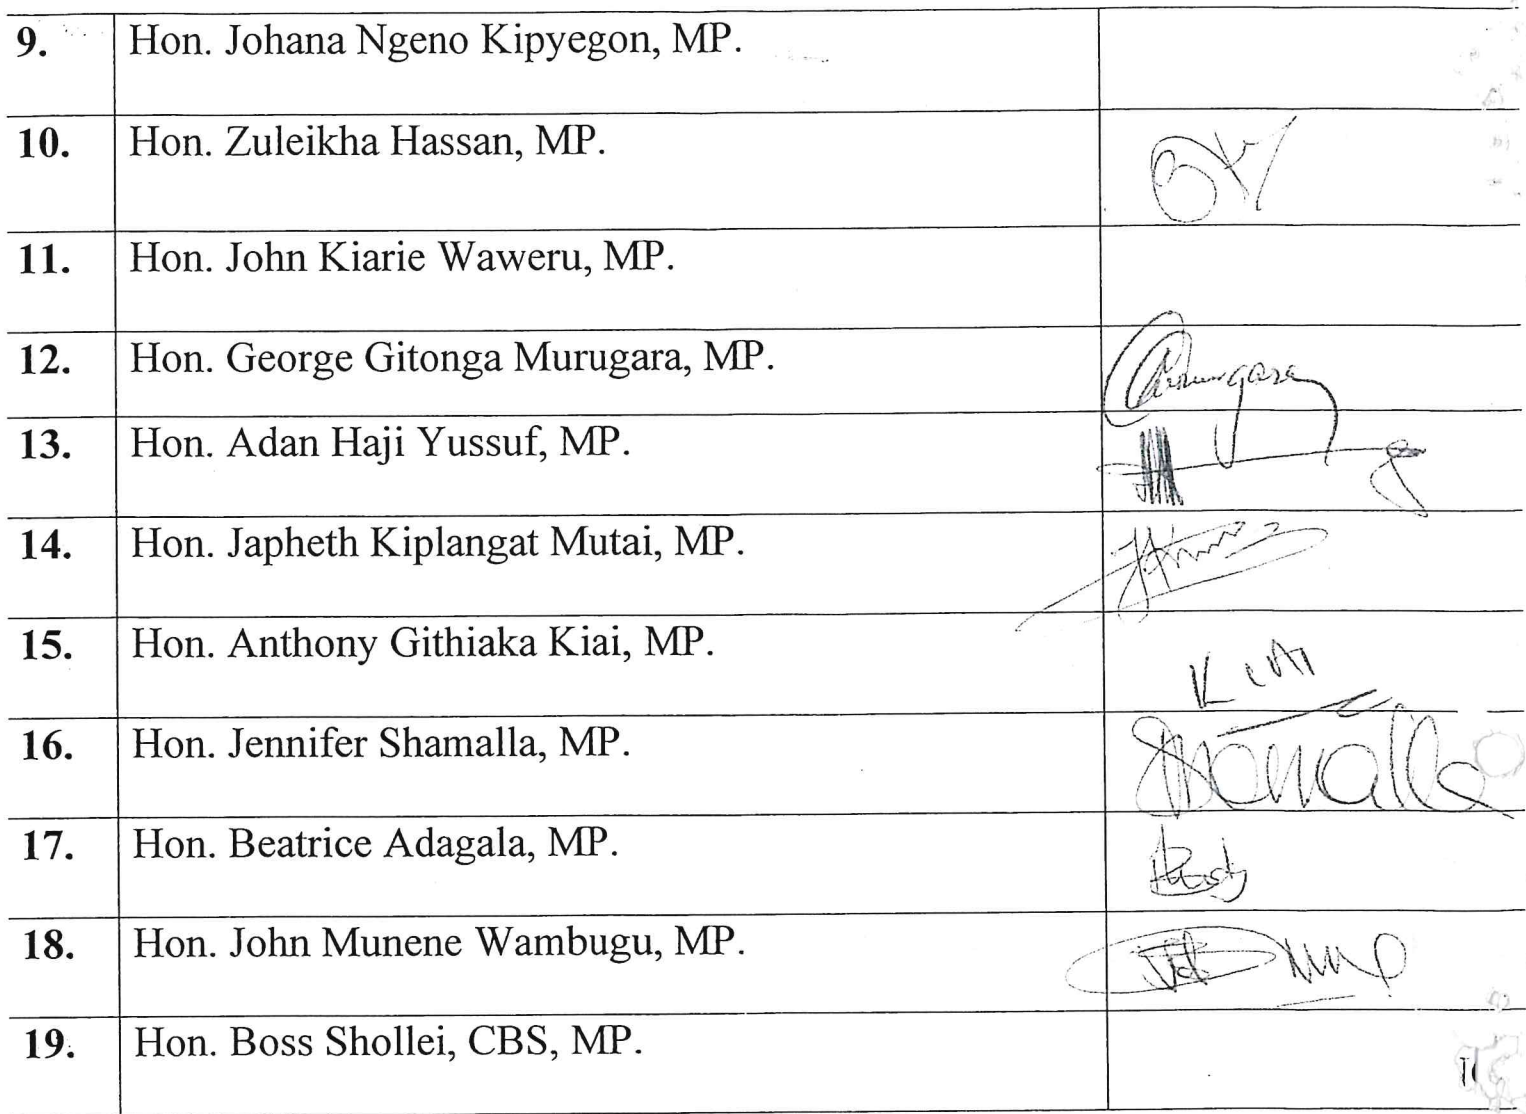 9. Hon. Johana Ngeno Kipyegon, MP.
10. Hon. Zuleikha Hassan, MP.
11. Hon. John Kiarie Waweru, MP.
12. Hon. George Gitonga Murugara, MP.
13. Hon. Adan Haji Yussuf, MP.
14. Hon. Japheth Kiplangat Mutai, MP.
15. Hon. Anthony Githiaka Kiai, MP.
16. Hon. Jennifer Shamalla, MP. Shamalla
17. Hon. Beatrice Adagala, MP.
18. Hon. John Munene Wambugu, MP.
19. Hon. Boss Shollei, CBS, MP.